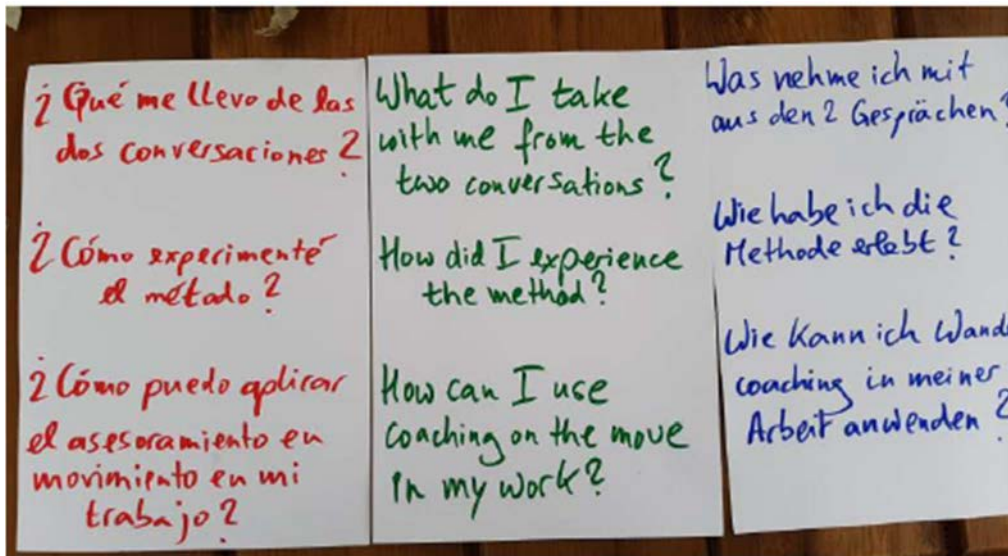 ¿ Qué me llevo de las
dos conversaciones ?
¿ Cómo experimenté
el método ?
¿ Cómo puedo aplicar
el asesoramiento en
movimiento en mi
trabajo ?
What do I take
with me from the
two conversations ?
How did I experience
the method ?
How can I use
coaching on the move
in my work ?
Was nehme ich mit
aus den 2 Gesprächen ?
Wie habe ich die
Methode erlebt ?
Wie kann ich Wand
coaching in meiner
Arbeit anwenden ?